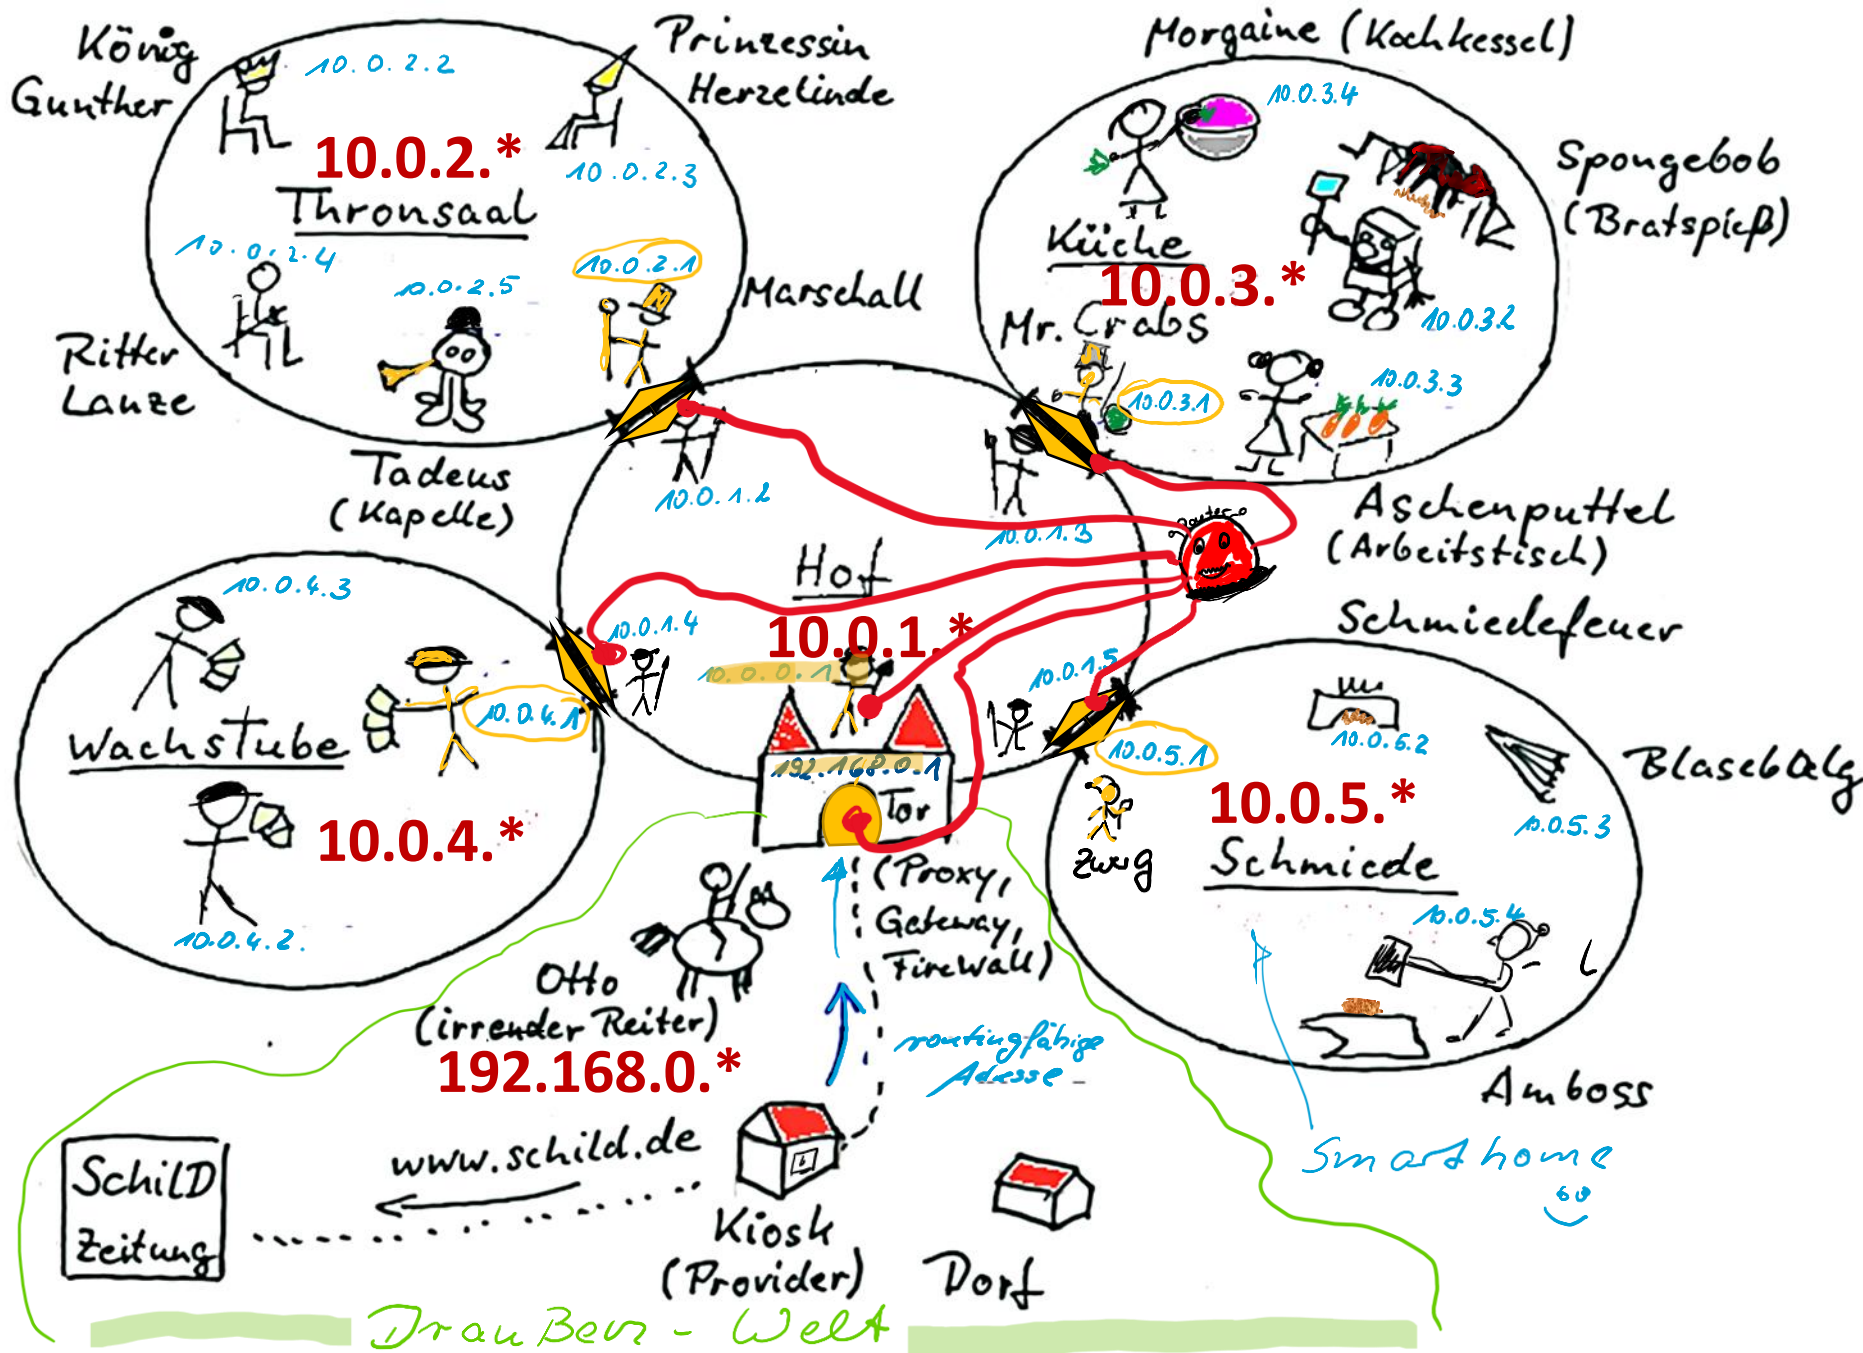 König
Gunther
10.0.2.2
Prinzessin
Herzelinde
10.0.2.*
10.0.2.3
Thronsaal
10.0.2.4
10.0.2.5
10.0.2.1
Marschall
Ritter
Lanze
Tadeus
(Kapelle)
Morgaine (Kochkessel)
10.0.3.4
Spongebob
(Bratspieß)
Küche
10.0.3.*
Mr. Crabs
10.0.3.2
10.0.3.3
10.0.3.1
Aschenputtel
(Arbeitstisch)
10.0.1.2
10.0.1.3
Router
Hof
10.0.1.*
10.0.1.4
10.0.0.1
10.0.1.5
192.168.0.1
Tor
(Proxy,
Gateway,
Firewall)
10.0.4.3
10.0.4.1
Wachstube
10.0.4.*
10.0.4.2.
Schmiedefeuer
10.0.5.2
Blasebalg
10.0.5.1
10.0.5.*
10.0.5.3
Zwerg
Schmiede
10.0.5.4
Amboss
Smarthome
Otto
(irrender Reiter)
192.168.0.*
routingfähige
Adresse
www.schild.de
SchilD
Zeitung
Kiosk
(Provider)
Dorf
Draußen - Welt